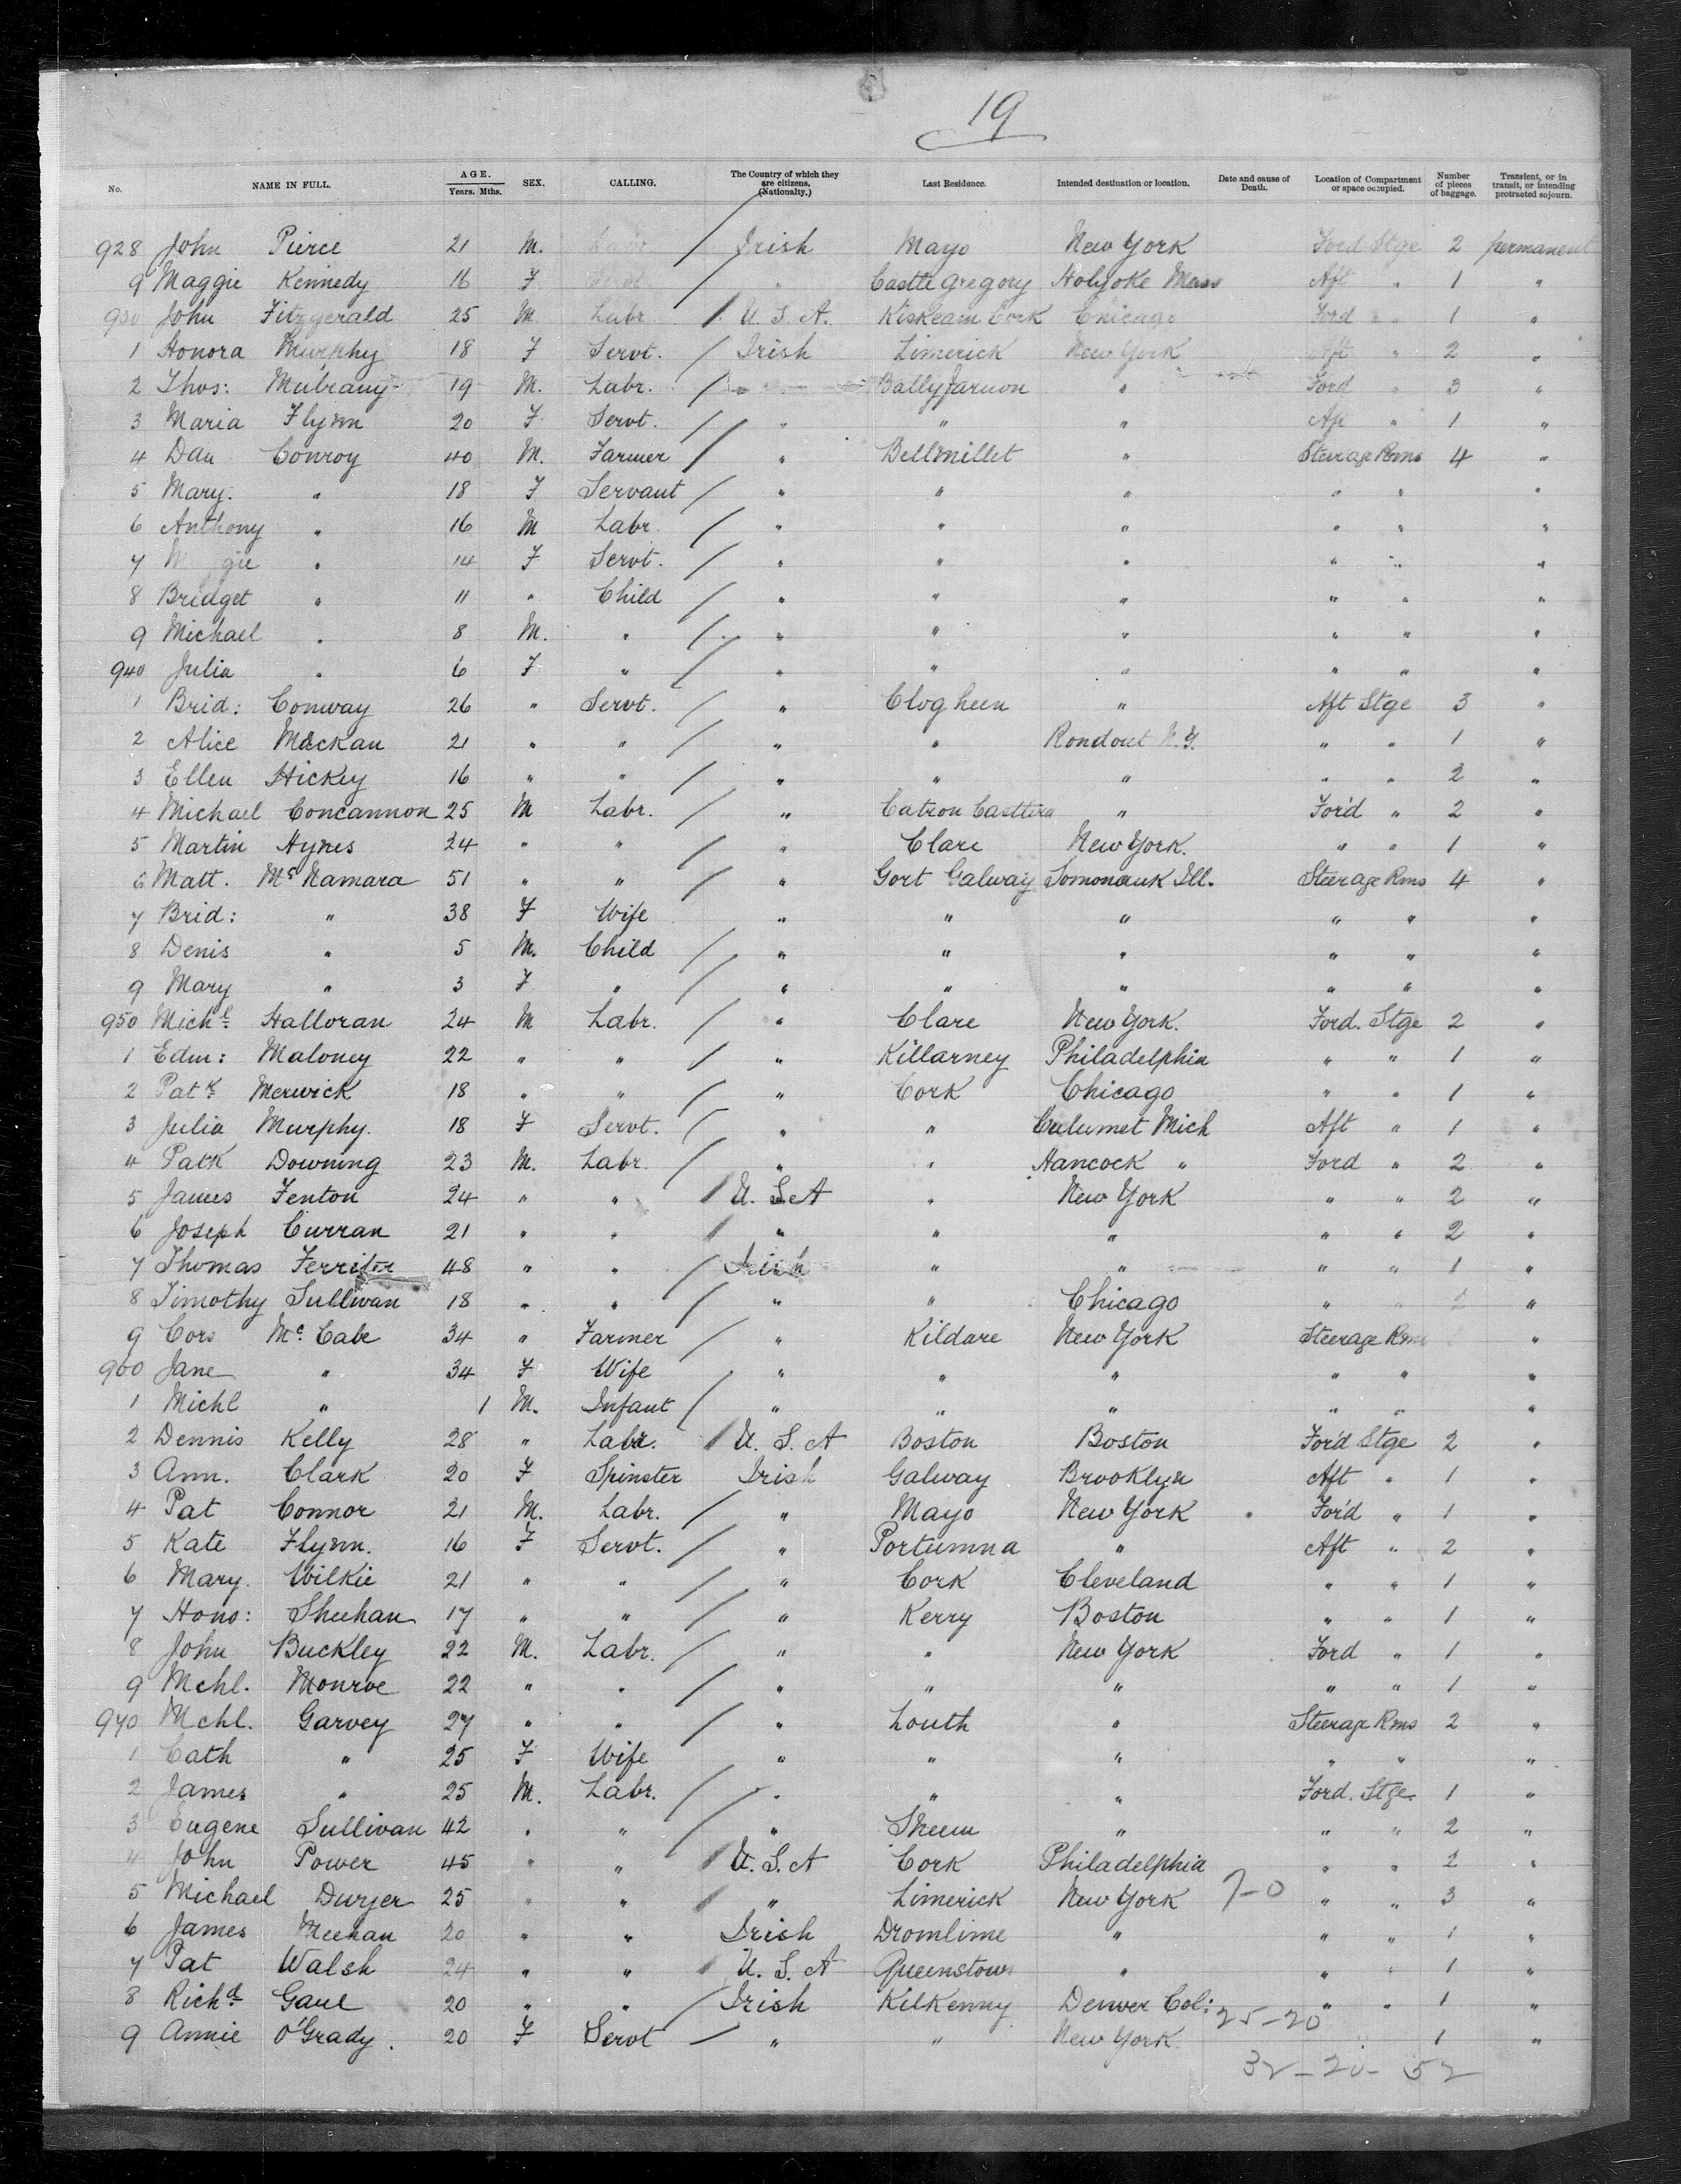 19
No. NAME IN FULL. AGE. Years. Mths. SEX. CALLING. The Country of which they are citizens. (Nationality.) Last Residence. Intended destination or location. Date and cause of Death. Location of Compartment or space occupied. Number of pieces of baggage. Transient, or in transit, or intending protracted sojourn.
928 John Pierce 21 M. Labr / Irish Mayo New York Ford Stge 2 permanent
9 Maggie Kennedy 16 F Servt / " Castle Gregory Holyoke Mass Aft " 1 "
930 John Fitzgerald 25 M Labr / U. S. A. Kiskeam Cork Chicago Ford " 1 "
1 Honora Murphy 18 F Servt. / Irish Limerick New York Aft " 2 "
2 Thos: 19 M. Labr. / " " Ford " 3 "
3 Maria Flynn 20 F Servt. / " " " Aft " 1 "
4 Dan Conroy 40 M. Farmer / " Bellmillet " Steerage Rms 4 "
5 Mary. " 18 F Servant / " " " " " "
6 Anthony " 16 M Labr. / " " " " " "
7 " 14 F Servt. / " " " " " "
8 Bridget " 11 " Child / " " " " " "
9 Michael " 8 M. " / " " " " " "
940 Julia " 6 F " / " " " " " "
1 Brid: Conway 26 " Servt. / " Clogheen " Aft Stge 3 "
2 Alice Mackan 21 " " / " " Rondout N.Y. " " 1 "
3 Ellen Hickey 16 " " / " " " " " 2 "
4 Michael Concannon 25 M Labr. / " " For'd " 2 "
5 Martin Hynes 24 " " / " Clare New York. " " 1 "
6 Matt. McNamara 51 " " / " Gort Galway Somonauk Ill. Steerage Rms 4 "
7 Brid: " 38 F Wife " " " " " "
8 Denis " 5 M. Child / " " " " " "
9 Mary " 3 F " / " " " " " "
950 Michl Halloran 24 M Labr. / " Clare New York. Ford. Stge 2 "
1 Edm: Maloney 22 " " / " Killarney Philadelphia " " 1 "
2 Patk Merwick 18 " " / " Cork Chicago " " 1 "
3 Julia Murphy. 18 F Servt. / " " Calumet Mich Aft " 1 "
4 Patk Downing 23 M. Labr. / " " Hancock " Ford " 2 "
5 James Fenton 24 " " / U. S. A " New York " " 2 "
6 Joseph Curran 21 " " / " " " " " 2 "
7 Thomas Ferriter 48 " " / Irish " " " " 1 "
8 Timothy Sullivan 18 " " / " " Chicago " " "
9 Cors McCabe 34 " Farmer / " Kildare New York Steerage Rms "
960 Jane " 34 F Wife " " " " " "
1 Michl " 1 M. Infant / " " " " " "
2 Dennis Kelly 28 " Labr. / U. S. A Boston Boston For'd Stge 2 "
3 Ann. Clark 20 F Spinster Irish Galway Brooklyn Aft " 1 "
4 Pat Connor 21 M. Labr. / " Mayo New York For'd " 1 "
5 Kate Flynn. 16 F Servt. / " Portumna " Aft " 2 "
6 Mary. Wilkie 21 " " / " Cork Cleveland " " 1 "
7 Hono: Sheehan 17 " " / " Kerry Boston " " 1 "
8 John Buckley 22 M. Labr. / " " New York Ford " 1 "
9 Mchl. Monroe 22 " " / " " " " " 1 "
970 Mchl. Garvey 27 " " / " Louth " Steerage Rms 2 "
1 Cath " 25 F Wife " " " " " "
2 James " 25 M. Labr. / " " " Ford. Stge 1 "
3 Eugene Sullivan 42 " " / " Sneem " " " 2 "
4 John Power 45 " " / U. S. A Cork Philadelphia " " 2 "
5 Michael Dwyer 25 " " / " Limerick New York 7-0 " " 3 "
6 James Meehan 20 " " Irish Dromline " " " 1 "
7 Pat Walsh 24 " " / U. S. A Queenstown " " " 1 "
8 Richd Gaul 20 " " / Irish Kilkenny Denver Col: " " 1 "
25-20
9 Annie O'Grady. 20 F Servt / " " New York. 1 "
32-20-52